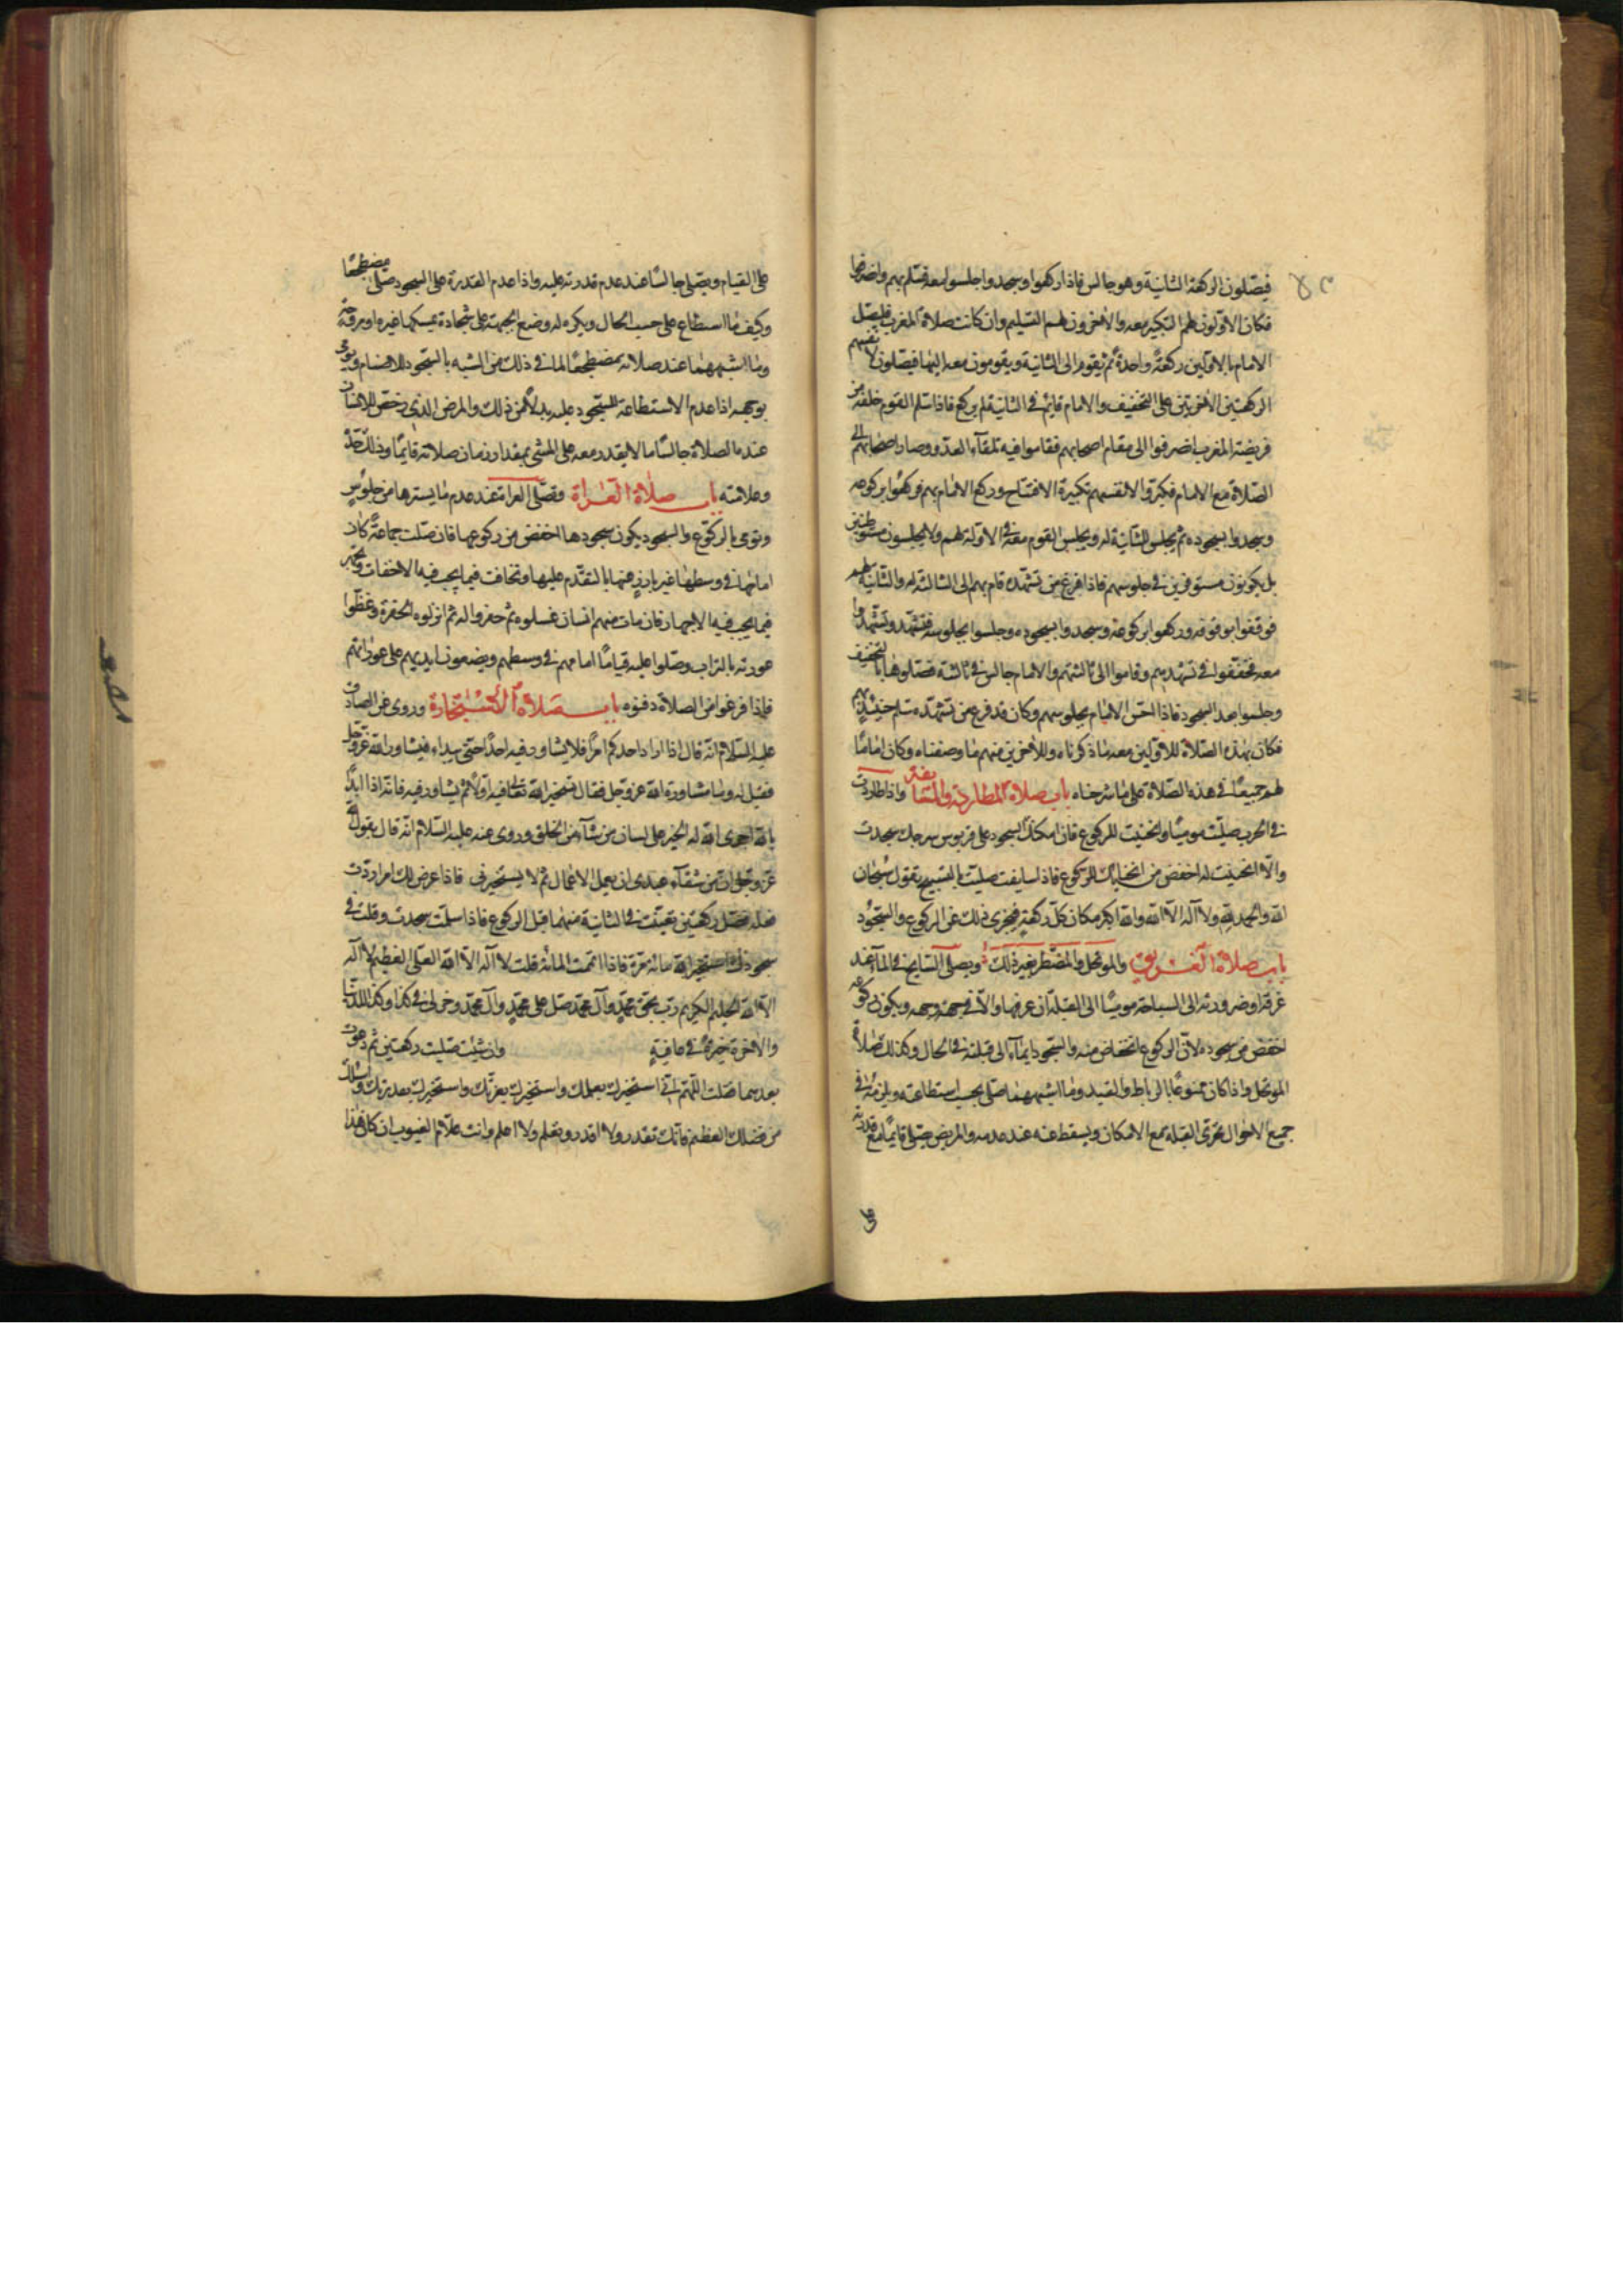 فيصلون الركعة الثانية وهو جالس فاذا ركعوا وسجدوا جلسوا معه فسلم بهم وانصرفوا
فكان الاولون لهم التكبير معه والاخرون لهم التسليم وان كانت صلاة المغرب فليصل
الامام بالاولين ركعة واحدة ثم يقوم الى الثانية ويقومون معه اليها فيصلون لانفسهم
الركعتين الاخرتين على التخفيف والامام قايم في الثانية لم يركع فاذا سلم القوم خلفه من
فريضة المغرب انصرفوا الى مقام اصحابهم فقاموا فيه تلقآء العدو وصار اصحابهم الى
الصلاة مع الامام فكبروا لانفسهم تكبيرة الافتتاح وركع الامام بهم فركعوا بركوعه
وسجدوا بسجوده ثم يجلس الثانية له ويجلس القوم معه في الاولة لهم ولا يجلسون متوطنين
بل يكونون مستوفزين في جلوسهم فاذا فرغ من تشهده قام بهم الى الثالثة له والثانية لهم
فوقفوا بوقوفه وركعوا بركوعه وسجدوا بسجوده وجلسوا بجلوسه فتشهد وتشهدوا
معه فخففوا في تشهدهم وقاموا الى ثالثتهم والامام جالس في ثالثته فصلوها بالتخفيف
وجلسوا بعد السجود فاذا احس الامام بجلوسهم وكان قد فرغ من تشهده سلم حينئذ بهم
فكان بهذه الصلاة للاولين معه ما ذكرناه وللاخرين منهم ما وصفناه وكان اماما
لهم جميعا في هذه الصلاة على ما شرحناه باب صلاة المطاردة والمسايفة واذا طاردت
في الحرب صليت موميا وانحنيت للركوع فان امكنك السجود على قربوس سرجك سجدت
والا انحنيت له اخفض من انحنائك للركوع فاذا سايفت صليت بالتسبيح تقول سبحان
الله والحمد لله ولا اله الا الله والله اكبر مكان كل ركعة فيجزى ذلك عن الركوع والسجود
باب صلاة الغريق والموتحل والمضطر بغير ذلك ويصلي السابح في المآء عند
غرقه او ضرورته الى السباحة موميا الى القبلة ان عرفها والا في جهة وجهه ويكون ركوعه
اخفض من سجوده لان الركوع انخفاض منه والسجود ايمآء الى قبلته في الحال وكذلك صلاة
الموتحل واذا كان ممنوعا بالرباط والقيد وما اشبههما صلى بحسب استطاعته ويلزمه في
جميع الاحوال تحرى القبلة مع الامكان ويسقط عنه عند عدمه والمريض يصلي قايما مع قدرته
على القيام ويصلي جالسا عند عدم قدرته عليه واذا عدم القدرة على السجود صلى مضطجعا
وكيف ما استطاع على حسب الحال ويكره له وضع الجبهة على سجادة يمسكها غيره او مروحة
وما اشبههما عند صلاته مضطجعا لما في ذلك من الشبه بالسجود للاصنام ويومى
بوجهه اذا عدم الاستطاعة للسجود عليه بدلا من ذلك والمرض الذي رخص للانسان
عنده الصلاة جالسا ما لا يقدر معه على المشي بمقدار زمان صلاته قايما وذلك حده
وعلامته باب صلاة العراة وتصلى العراة عند عدم ما يسترها من جلوس
وتومى بالركوع والسجود يكون سجودها اخفض من ركوعها فان صلت جماعة كان
امامها في وسطها غير بارز عنها بالتقدم عليها وتخافت فيما يجب فيه الاخفات وتجهر
فيما يجب فيه الاجهار فان مات منهم انسان غسلوه ثم حفروا له ثم انزلوه الحفرة وغطوا
عورته بالتراب وصلوا عليه قياما امامهم في وسطهم ويضعون ايديهم على عوراتهم
فاذا فرغوا من الصلاة دفنوه باب صلاة الاستخارة وروى عن الصادق
عليه السلام انه قال اذا اراد احدكم امرا فلا يشاور فيه احدا حتى يبداء فيشاور الله عز وجل
فقيل له وما مشاورة الله عز وجل فقال تستخير الله تعالى فيه اولا ثم يشاور فيه فانه اذا ابدا
بالله اجرى الله له الخير على لسان من شآء من الخلق وروى عنه عليه السلام انه قال يقول الله
عز وجل ان من شقآء عبدى ان يعمل الاعمال ثم لا يستخيرنى فاذا عرض لك امر اردت
فعله فصل ركعتين تقنت في الثانية منهما قبل الركوع فاذا سلمت سجدت وقلت في
سجودك استخير الله مائة مرة فاذا اتممت المائة قلت لا اله الا الله العلي العظيم لا اله
الا الله الحليم الكريم رب بحق محمد وآل محمد صل على محمد وآل محمد وخر لى في كذا وكذا للدنيا
والاخرة خيرة في عافية وان شئت صليت ركعتين ثم دعوت
بعدهما فقلت اللهم انى استخيرك بعلمك واستخيرك بعزتك واستخيرك بقدرتك واسئلك
من فضلك العظيم فانك تقدر ولا اقدر وتعلم ولا اعلم وانت علام الغيوب ان كان هذا